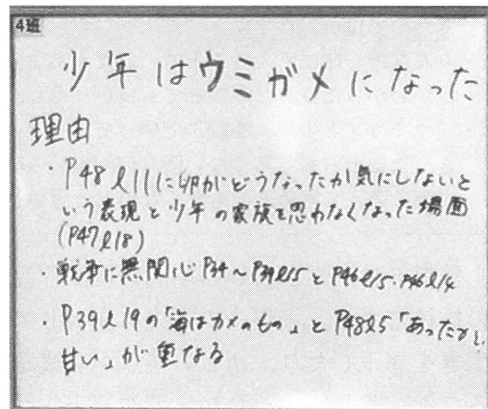 4班
少年はウミガメになった
理由
・P48 l11に卵がどうなったか気にしないと
いう表現と少年の家族を思わなくなった場面
(P47 l18)
・戦争に無関心 P34～P39 l15とP46 l15. P46 l14
・P39 l19の「海はカメのもの」とP48 l5「あったかい、
甘い」が重なる